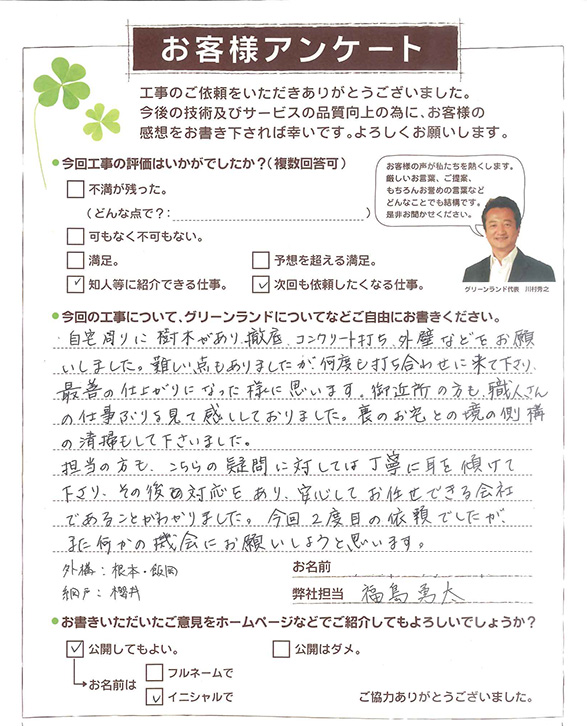 お客様アンケート
工事のご依頼をいただきありがとうございました。
今後の技術及びサービスの品質向上の為に、お客様の
感想をお書き下されば幸いです。よろしくお願いします。
今回工事の評価はいかがでしたか?(複数回答可)
不満が残った。
(どんな点で?:
可もなく不可もない。
満足。
予想を超える満足。
知人等に紹介できる仕事。
次回も依頼したくなる仕事。
お客様の声が私たちを熱くします。
厳しいお言葉、ご提案、
もちろんお誉めの言葉など
どんなことでも結構です。
是非お聞かせください。
グリーンランド代表 川村秀之
今回の工事について、グリーンランドについてなどご自由にお書きください。
自宅周りに樹木があり、撤底、コンクリート打ち、外壁などをお願
いしました。難しい点もありましたが何度も打ち合わせに来て下さり、
最善の仕上がりになった様に思います。御近所の方も、職人さん
の仕事ぶりを見て感心しておりました。裏のお宅との境の側構
の清掃もして下さいました。
担当の方も、こちらの疑問に対しては丁寧に耳を傾けて
下さり、その後の対応もあり、安心してお任せできる会社
であることがわかりました。今回2度目の依頼でしたが、
また何かの機会にお願いしようと思います。
外構:根本・飯岡
網戸:櫻井
お名前
弊社担当 福島勇太
お書きいただいたご意見をホームページなどでご紹介してもよろしいでしょうか?
公開してもよい。
公開はダメ。
お名前は
フルネームで
イニシャルで
ご協力ありがとうございました。